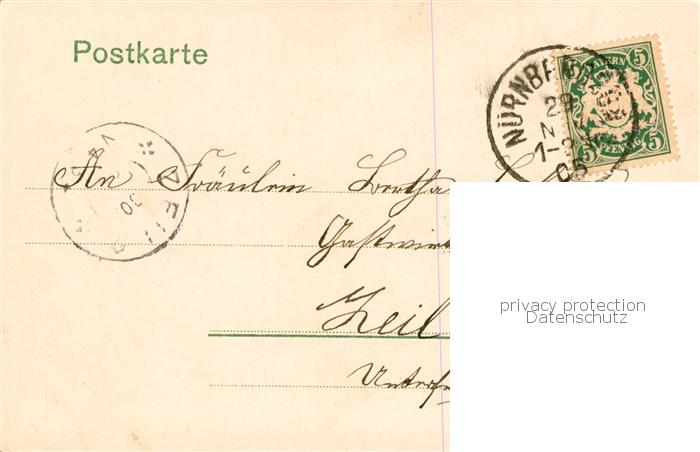 Postkarte
NÜRNBERG
29
N
1-2
05
BAYERN
5 5
5 PFENNIG 5
ZEIL
30
An Fräulein Bertha
Gastwir
Zeil
Unterfr
privacy protection
Datenschutz